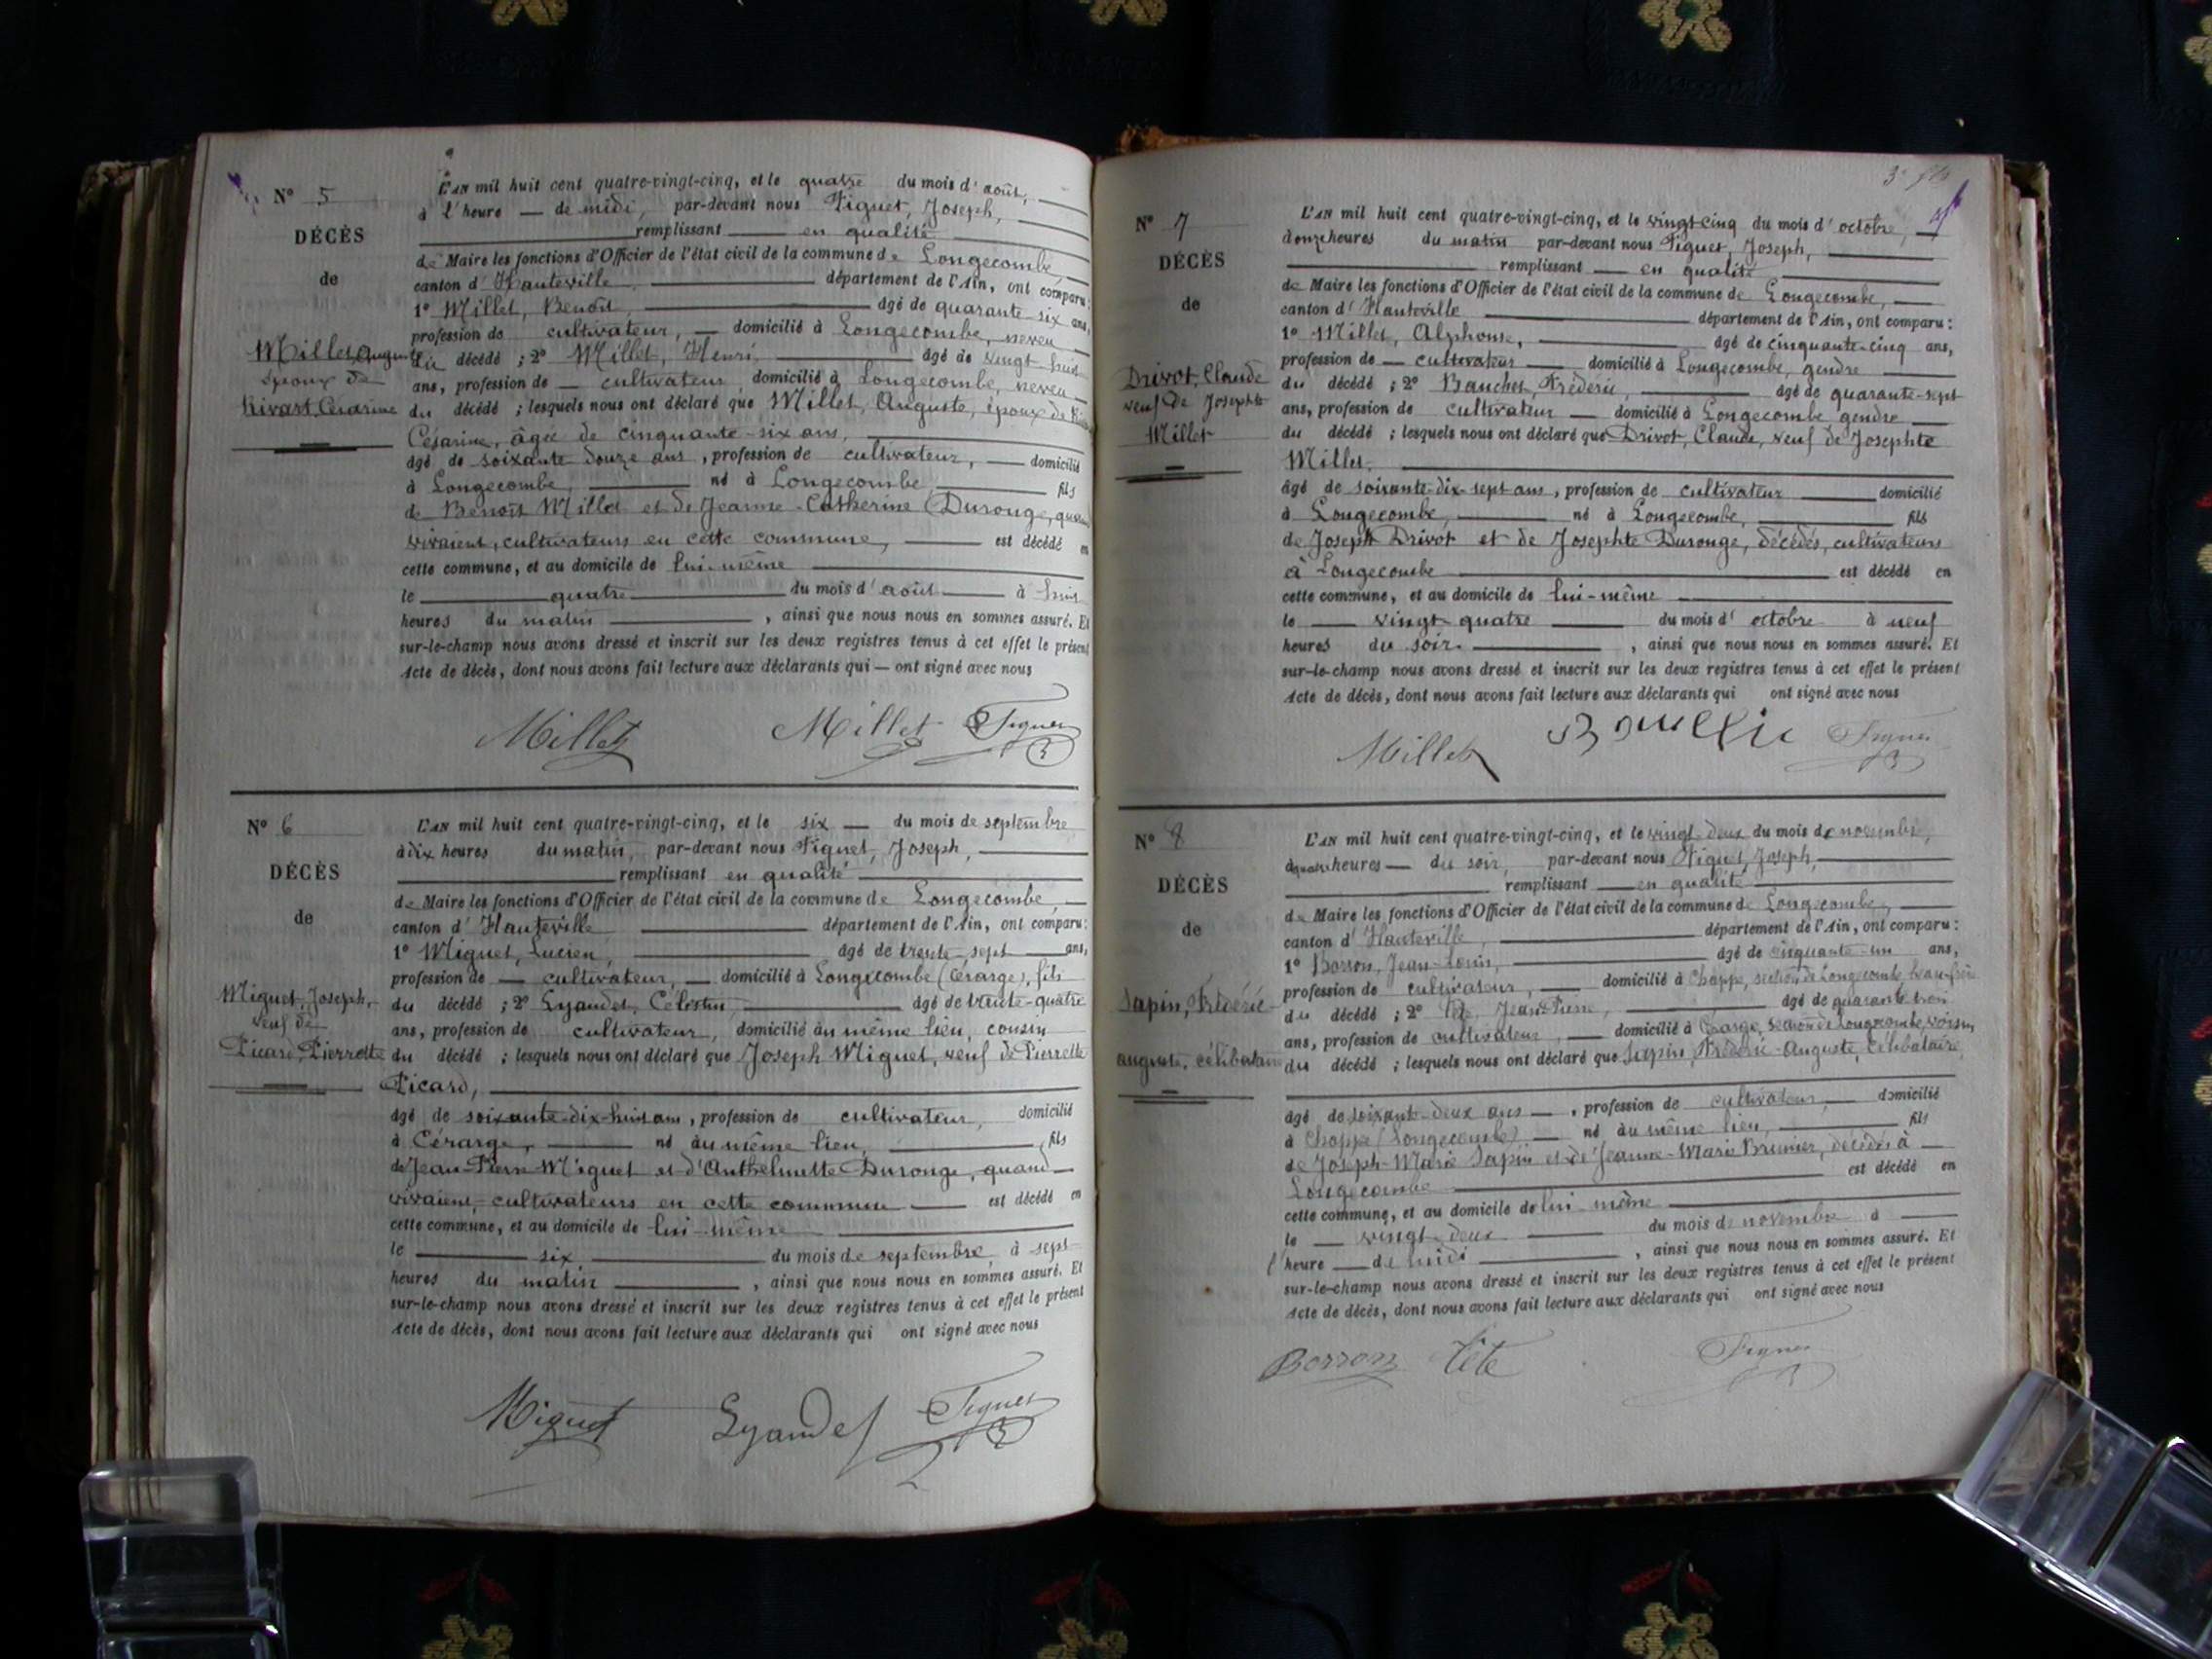 N° 5
DÉCÈS
de
Millet, Auguste
époux de
Rivart, Césarine
L'AN mil huit cent quatre-vingt-cinq, et le quatre du mois d'août,
à l'heure — de midi, par-devant nous Figuet, Joseph,
remplissant — en qualité
de Maire les fonctions d'Officier de l'état civil de la commune de Longecombe,
canton d'Hauteville, département de l'Ain, ont comparu:
1° Millet, Benoit, âgé de quarante-six ans,
profession de cultivateur, — domicilié à Longecombe, neveu
du décédé ; 2° Millet, Henri, âgé de vingt-huit
ans, profession de — cultivateur, domicilié à Longecombe, neveu
du décédé ; lesquels nous ont déclaré que Millet, Auguste, époux de
Césarine, âgée de cinquante-six ans,
âgé de soixante-douze ans, profession de cultivateur, — domicilié
à Longecombe, né à Longecombe fils
de Benoit Millet et de Jeanne-Catherine Durouge, quand
vivaient, cultivateurs en cette commune, est décédé en
cette commune, et au domicile de lui-même
le quatre du mois d'août à huit
heures du matin, ainsi que nous nous en sommes assuré. Et
sur-le-champ nous avons dressé et inscrit sur les deux registres tenus à cet effet le présent
Acte de décès, dont nous avons fait lecture aux déclarants qui — ont signé avec nous
Millet Millet Figuet
N° 6
DÉCÈS
de
Miguet, Joseph,
veuf de
Picard, Pierrette
L'AN mil huit cent quatre-vingt-cinq, et le six — du mois de septembre
à dix heures du matin, par-devant nous Figuet, Joseph,
remplissant en qualité
de Maire les fonctions d'Officier de l'état civil de la commune de Longecombe,
canton d'Hauteville département de l'Ain, ont comparu:
1° Miguet, Lucien, âgé de trente-sept ans,
profession de — cultivateur, — domicilié à Longecombe (Cérarge), fils
du décédé ; 2° Lyaudet, Célestin, âgé de trente-quatre
ans, profession de cultivateur, domicilié au même lieu, cousin
du décédé ; lesquels nous ont déclaré que Joseph Miguet, veuf de Pierrette
Picard,
âgé de soixante-dix-huit ans, profession de cultivateur, domicilié
à Cérarge, né au même lieu, fils
de Jean-Pierre Miguet et d'Anthelmette Durouge, quand
vivaient, cultivateurs en cette commune — est décédé en
cette commune, et au domicile de lui-même
le six du mois de septembre à sept
heures du matin, ainsi que nous nous en sommes assuré. Et
sur-le-champ nous avons dressé et inscrit sur les deux registres tenus à cet effet le présent
Acte de décès, dont nous avons fait lecture aux déclarants qui ont signé avec nous
Miguet Lyaudet Figuet
N° 7
DÉCÈS
de
Drivot, Claude
veuf de Josephte
Millet
L'AN mil huit cent quatre-vingt-cinq, et le vingt-cinq du mois d'octobre,
à onze heures du matin par-devant nous Figuet, Joseph,
remplissant — en qualité
de Maire les fonctions d'Officier de l'état civil de la commune de Longecombe,
canton d'Hauteville département de l'Ain, ont comparu:
1° Millet, Alphonse, âgé de cinquante-cinq ans,
profession de — cultivateur — domicilié à Longecombe, gendre
du décédé ; 2° Bauchet, Fréderic, âgé de quarante-sept
ans, profession de cultivateur — domicilié à Longecombe gendre
du décédé ; lesquels nous ont déclaré que Drivot, Claude, veuf de Josephte
Millet,
âgé de soixante-dix-sept ans, profession de cultivateur domicilié
à Longecombe, né à Longecombe, fils
de Joseph Drivot et de Josephte Durouge, décédés, cultivateurs
à Longecombe est décédé en
cette commune, et au domicile de lui-même
le — vingt-quatre du mois d'octobre à neuf
heures du soir, ainsi que nous nous en sommes assuré. Et
sur-le-champ nous avons dressé et inscrit sur les deux registres tenus à cet effet le présent
Acte de décès, dont nous avons fait lecture aux déclarants qui ont signé avec nous
Millet Figuet
N° 8
DÉCÈS
de
Sapin, Frédéric-
auguste, célibataire
L'AN mil huit cent quatre-vingt-cinq, et le vingt-deux du mois de novembre,
à quatre heures — du soir, par-devant nous Figuet, Joseph,
remplissant — en qualité
de Maire les fonctions d'Officier de l'état civil de la commune de Longecombe,
canton d'Hauteville, département de l'Ain, ont comparu:
1° Borron, Jean-Louis, âgé de cinquante-un ans,
profession de cultivateur, — domicilié à Choppe, section de Longecombe, beau-frère
du décédé ; 2° Tête, Jean-Pierre, âgé de quarante-trois
ans, profession de cultivateur, — domicilié à Cérarge, section de Longecombe, voisin
du décédé ; lesquels nous ont déclaré que Sapin, Frédéric-Auguste, célibataire
âgé de soixante-deux ans —, profession de cultivateur, — domicilié
à Choppe (Longecombe), — né au même lieu, fils
de Joseph-Marie Sapin et de Jeanne-Marie Brunier, décédés à
Longecombe est décédé en
cette commune, et au domicile de lui-même
le — vingt-deux du mois de novembre à
l'heure — de midi, ainsi que nous nous en sommes assuré. Et
sur-le-champ nous avons dressé et inscrit sur les deux registres tenus à cet effet le présent
Acte de décès, dont nous avons fait lecture aux déclarants qui ont signé avec nous
Borron Tête Figuet